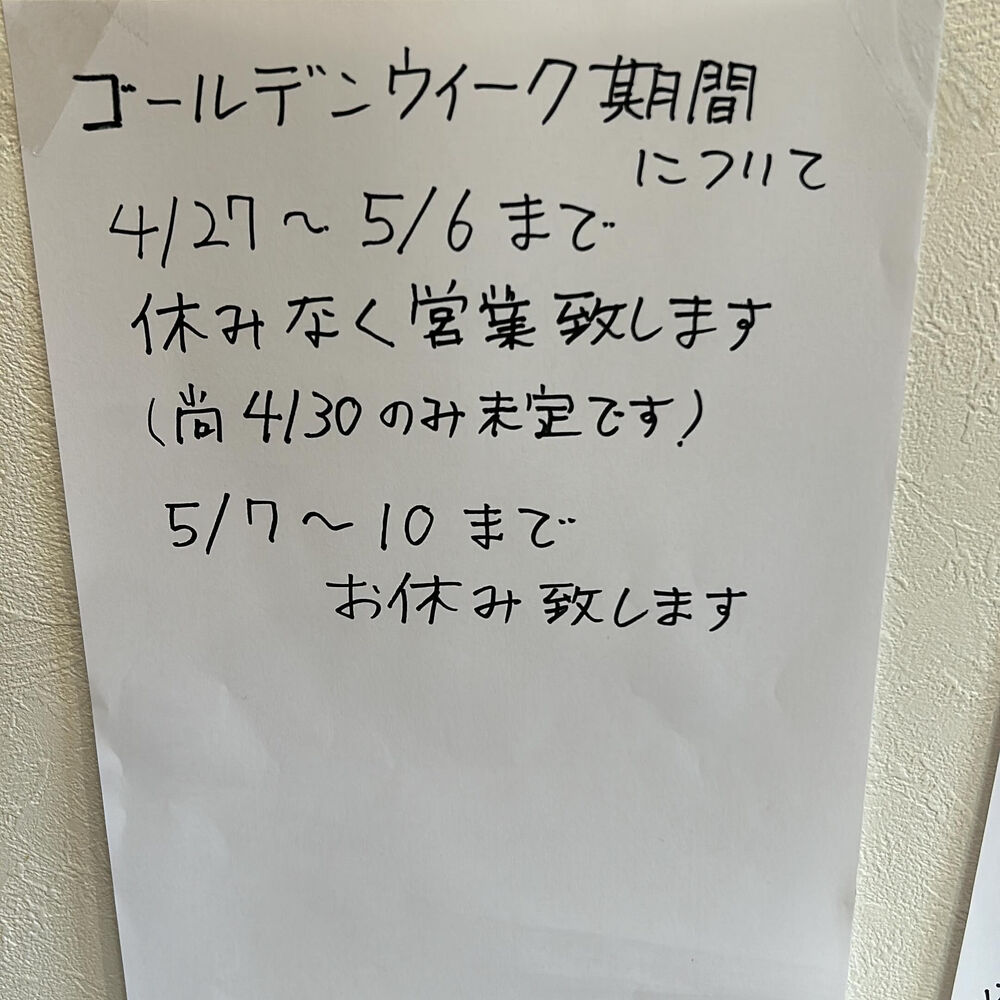 ゴールデンウィーク期間
について
4/27〜5/6まで
休みなく営業致します
(尚4/30のみ未定です)
5/7〜10まで
お休み致します